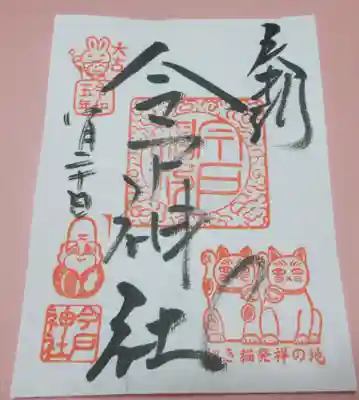 奉拝
今戸神社
今戸
大吉
令和
五年
月二十日
き猫発祥の地
今戸
神社